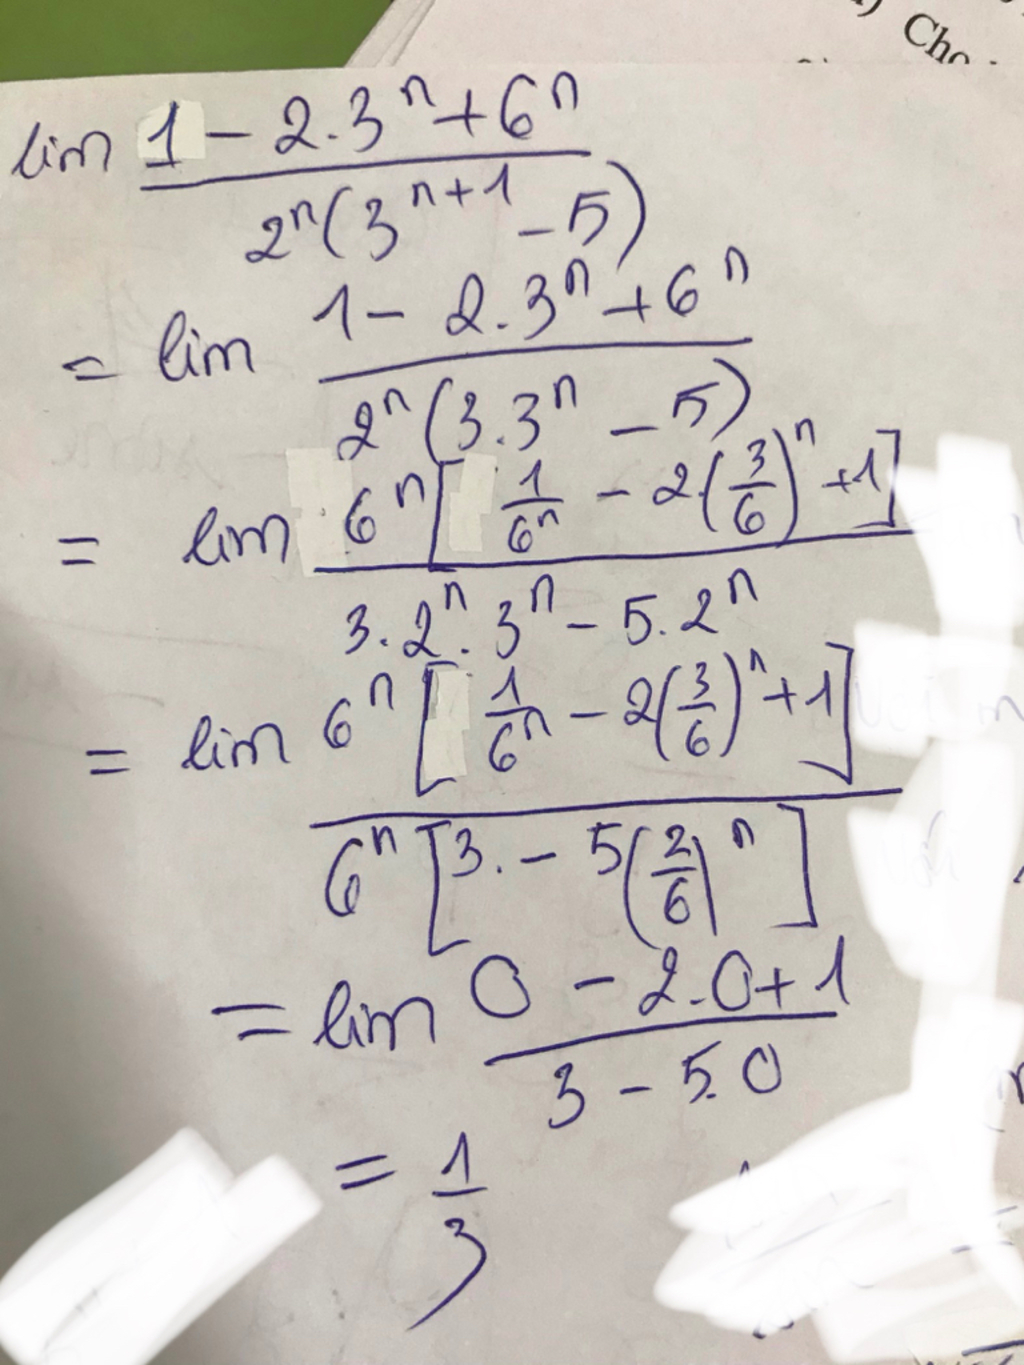 Cho
lim (1 - 2.3^n + 6^n) / (2^n(3^{n+1} - 5))
= lim (1 - 2.3^n + 6^n) / (2^n(3.3^n - 5))
= lim (6^n[1/6^n - 2.(3/6)^n + 1]) / (3.2^n.3^n - 5.2^n)
= lim (6^n[1/6^n - 2(3/6)^n + 1]) / (6^n[3. - 5(2/6)^n])
= lim (0 - 2.0 + 1) / (3 - 5.0)
= 1/3